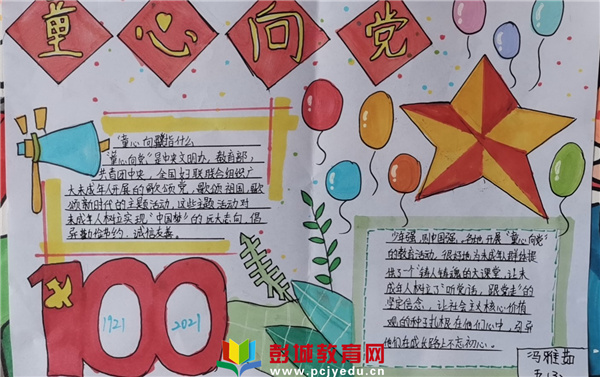 童心向党
童心向党指什么
"童心向党"是中央文明办、教育部、
共青团中央、全国妇联联合组织广
大未成年人开展的歌颂党、歌颂祖国、歌
颂新时代的主题活动,这些主题活动对
未成年人树立实现"中国梦"的远大志向,倡
导勤俭节约、诚信友善。
100
1921
2021
少年强,则中国强。各地开展"童心向党"
的教育活动,很好地为未成年人群体提
供了一个铸人铸魂的大课堂,让未
成年人树立了"听党话,跟党走"的
坚定信念,让社会主义核心价值
观的种子扎根在他们心中,引导
他们在成长路上不忘初心。
冯雅茹
彭城教育网
www.pcjyedu.cn